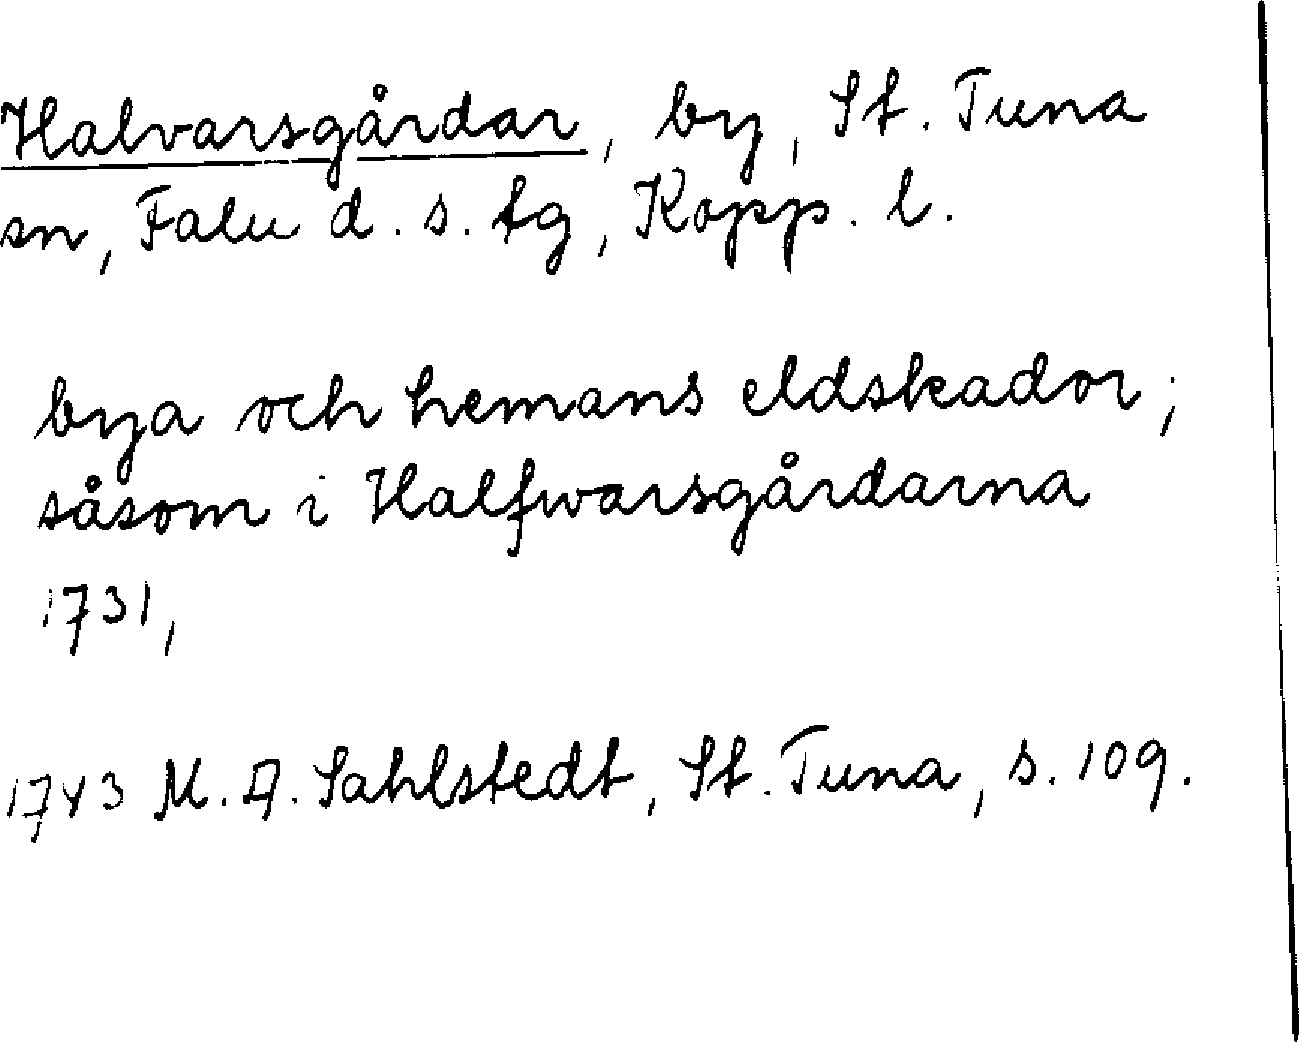 Halvarsgårdar, by, St. Tuna
sn, Falu d. s. tg, Kopp. l.
bya och hemans eldskador;
såsom i Halfwarsgårdarna
1731,
1743 M. A. Sahlstedt, St. Tuna, s. 109.